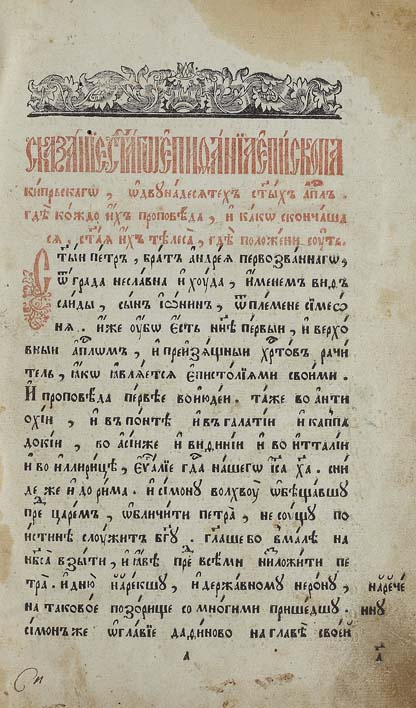 Сказа́нїе ст҃а́гѡ є҆пифа́нїѧ є҆пи́скопа
ки́прьскагѡ , ѡ҆ двꙋна́десѧтехъ ст҃ы́хъ а҆пл҃ъ .
гдѣ̀ ко́ждо и҆́хъ проповѣ́да , и҆ ка́кѡ сконча́ша
сѧ . ст҃а́ѧ и҆́хъ тѣлеса̀ , гдѣ̀ поло́жени соуть .
Ст҃ы́и пе́тръ , бра́тъ а҆ндре́ѧ первозва́ннагѡ ,
ѿ гра́да несла́вна и҆ хꙋ́да , и҆́менемъ виѳъ
саи́ды , сы́нъ і҆ѡ́нинъ , ѿ пле́мене сїмеѡ҆
нѧ . и҆́же оу҆́бѡ є҆́сть нн҃ѣ пе́рвыи , и҆ верхо́
вныи а҆пⷭ҇лѡмъ , и҆ преизѧ́щныи хрⷭ҇то́въ рачи́
тель , ꙗ҆́кѡ ꙗ҆влѧ́етсѧ є҆пⷭ҇то́лїѧми свои́ми .
И҆ проповѣ́да пе́рвѣе во і҆ю҆де́и . та́же во а҆нти
охі́и , и҆ въ по́нтѣ и҆ въ гала́тїи и҆ каппа
докі́и , во а҆сі́и же и҆ виѳинїи и҆ во и҆тта́лїи
и҆ во и҆ллири́цѣ , є҆ѵⷢ҇лїе гдⷭ҇а на́шегѡ і҆с҃а хрⷭ҇та̀ . сни́
де же и҆ до ри́ма . и҆ сі́монꙋ волхвоу̀ ѡ҆бѣща́вшꙋ
преⷣ царе́мъ , ѡ҆бличи́ти петра̀ , не со́ущꙋ по
и҆́стинѣ слоужи́тъ бг҃ꙋ . гл҃аше бо вма́лѣ на
нб҃са̀ взы́ти , и҆ ꙗ҆́вѣ преⷣ все́ми низложи́ти пе
тра̀ . и҆ дню̀ наре́кшꙋ , и҆ держа́вномꙋ неро́нꙋ , наⷬ҇рече́
на таково́е позо́рище со мно́гими прише́дшꙋ . ннꙋ
сі́монъ же ѡ҆гла́вїе дафи́ново на главѣ̀ свое́й
а а҃